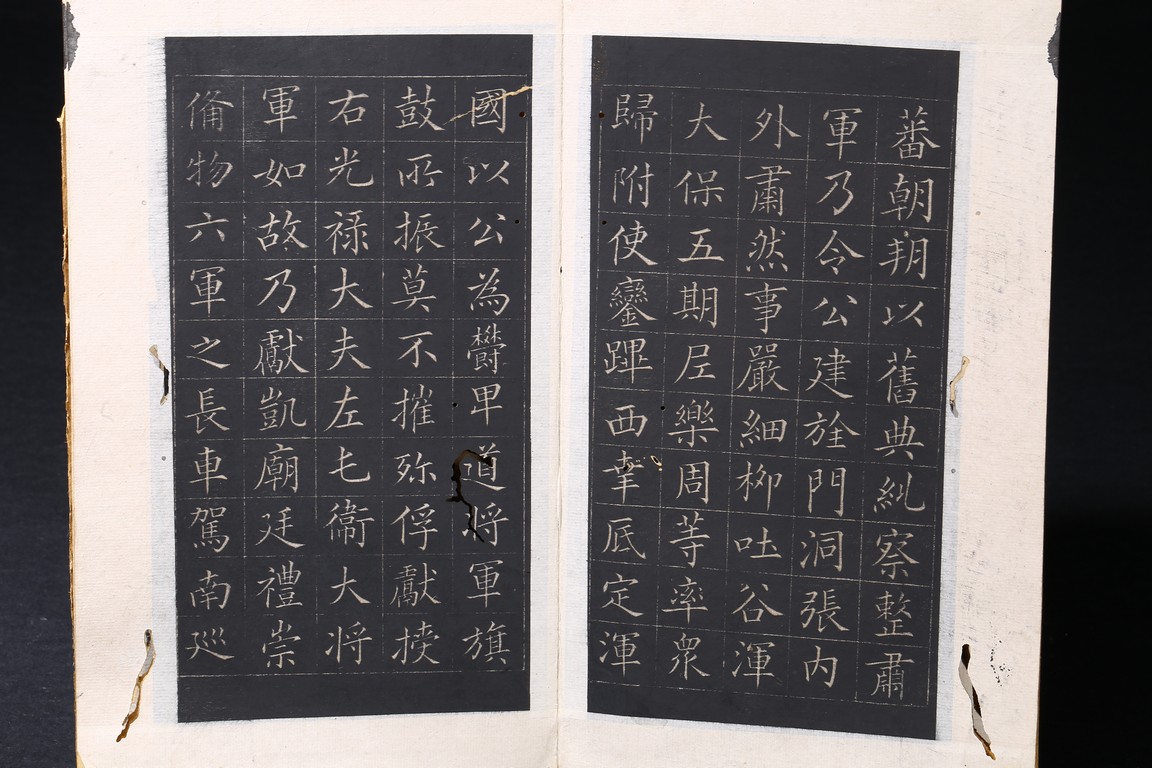 蕃朝朔以舊典糺察整肅
軍乃令公建旌門洞張內
外肅然事嚴細柳吐谷渾
大保五期𡰱樂周等率衆
歸附使鑾蹕西幸底定渾
國以公為欝卑道將軍旗
鼓所振莫不摧殄俘獻㨽
右光祿大夫左屯衛大將
軍如故乃獻凱廟廷禮崇
俻物六軍之長車駕南巡